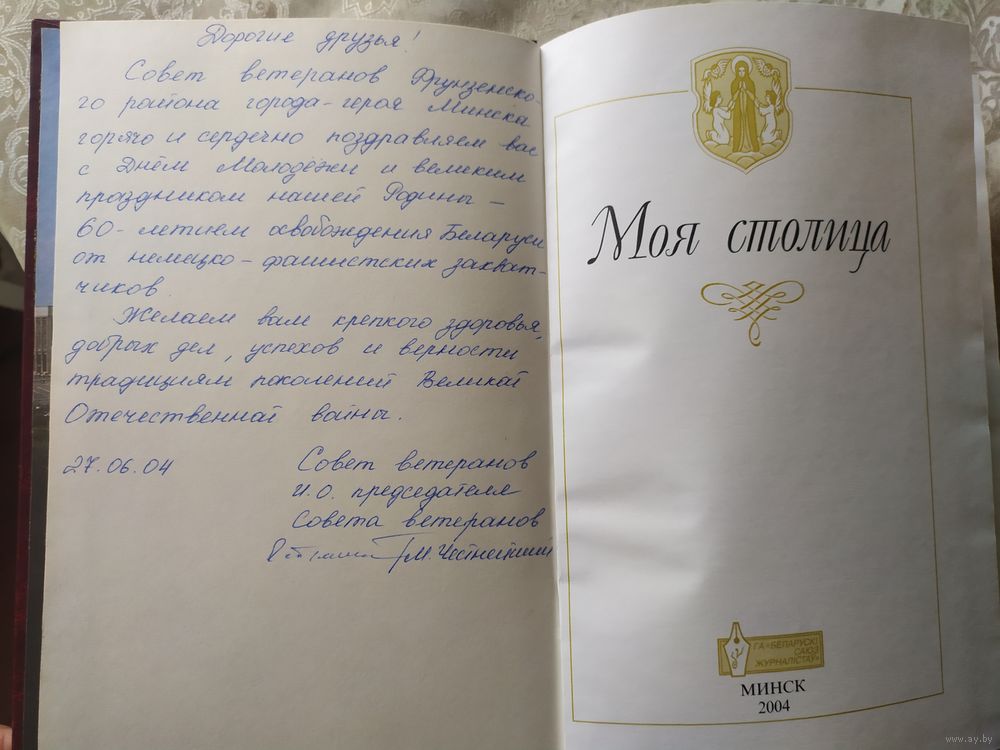 Дорогие друзья!
Совет ветеранов Фрунзенско-
го района города-героя Минска
горячо и сердечно поздравляем вас
с Днём Молодёжи и великим
праздником нашей Родины –
60-летием освобождения Беларуси
от немецко-фашистских захват-
чиков.
Желаем вам крепкого здоровья,
добрых дел, успехов и верности
традициям поколений Великой
Отечественной войны.
27.06.04
Совет ветеранов
И.о. председателя
Совета ветеранов
М.
Моя столица
ГА «БЕЛАРУСКІ
САЮЗ
ЖУРНАЛІСТАЎ»
МИНСК
2004
www.ay.by